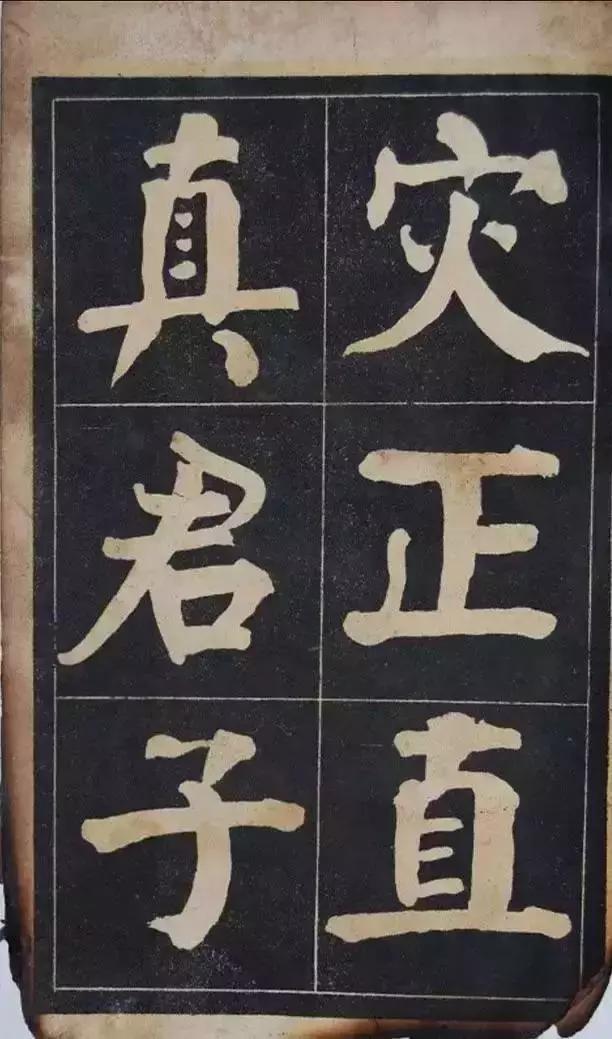 灾正直
真君子